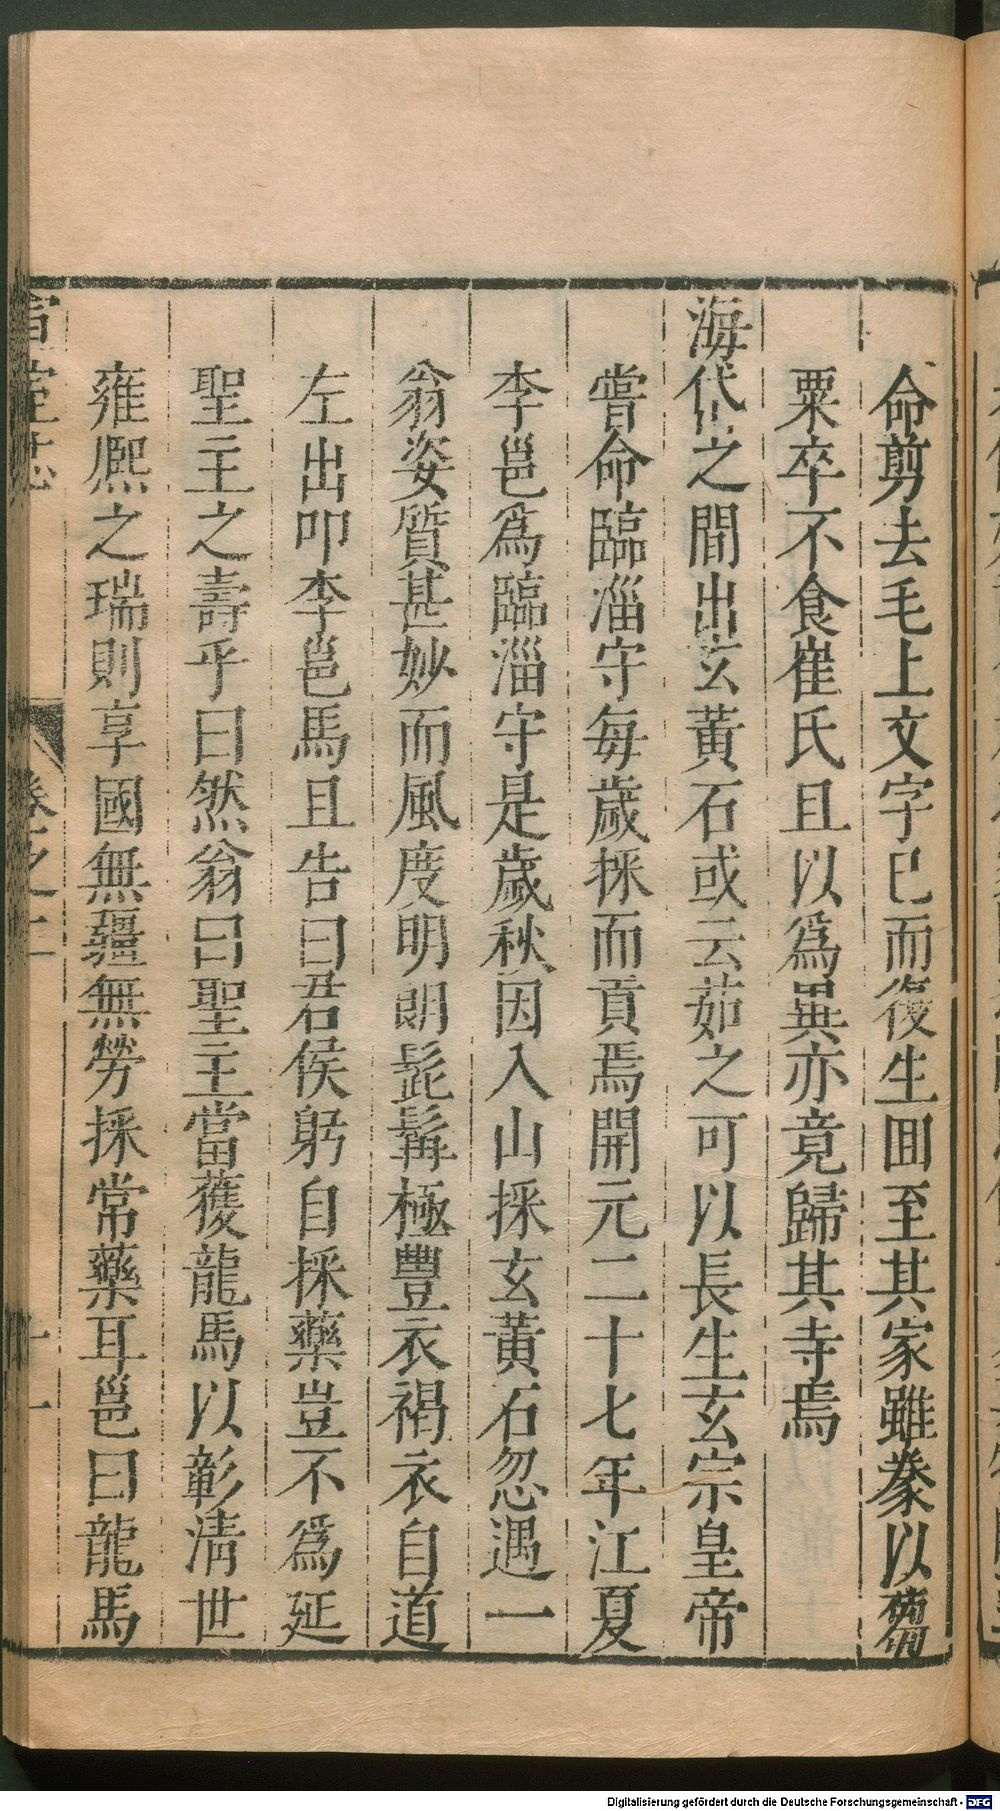 命剪去毛上文字已而復生囬至其家雖豢以蒭
粟卒不食崔氏且以爲異亦竟歸其寺焉
海岱之間出玄黃石或云茹之可以長生玄宗皇帝
嘗命臨淄守每歲採而貢焉開元二十七年江夏
李邕爲臨淄守是歲秋因入山採玄黃石忽遇一
翁姿質甚妙而風度明朗髭髯極豐衣褐衣自道
左出叩李邕馬且告曰君侯躬自採藥豈不爲延
聖主之壽乎曰然翁曰聖主當獲龍馬以彰淸世
雍熈之瑞則享國無疆無勞採常藥耳邕曰龍馬
宣室志 卷之二 十一
Digitalisierung gefördert durch die Deutsche Forschungsgemeinschaft - DFG